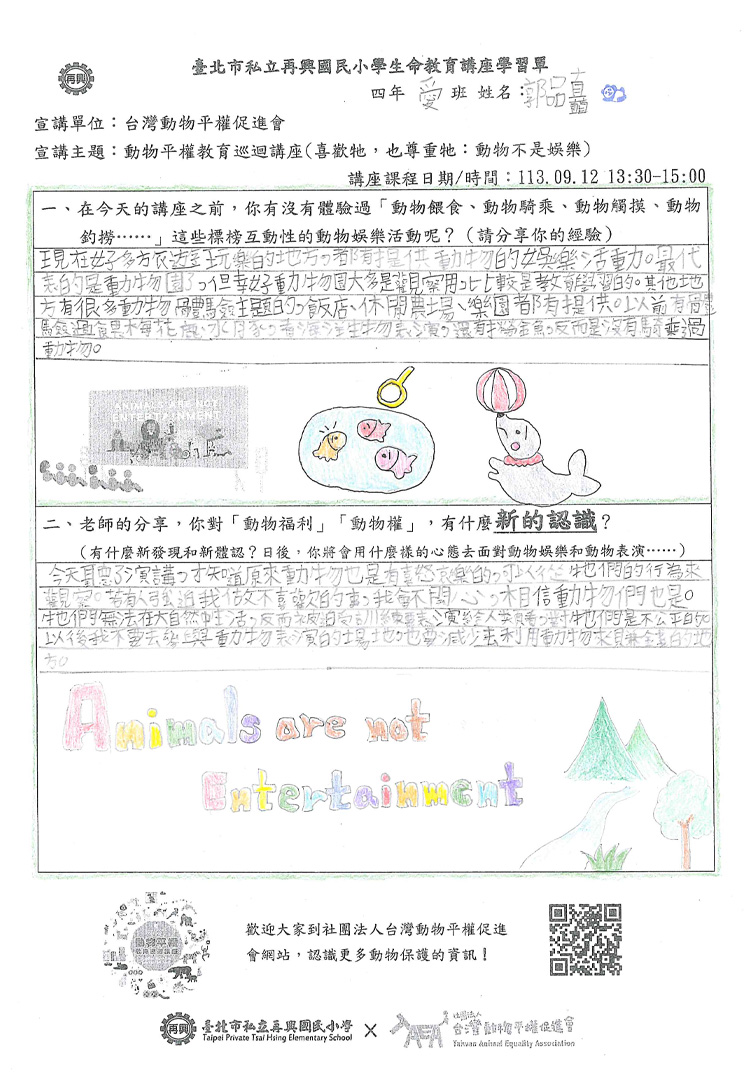 再興
臺北市私立再興國民小學生命教育講座學習單
四年 愛 班 姓名：郭品
宣講單位：台灣動物平權促進會
宣講主題：動物平權教育巡迴講座(喜歡牠，也尊重牠：動物不是娛樂)
講座課程日期/時間：113.09.12 13:30-15:00
一、在今天的講座之前，你有沒有體驗過「動物餵食、動物騎乘、動物觸摸、動物
釣撈……」這些標榜互動性的動物娛樂活動呢？（請分享你的經驗）
現在好多方放遊玩樂的地方，都有提供動物的娛樂活動。最代
表的是動物園了，但幸好動物園大多是觀察用，比較是教育學習的。其他地
方有很多動物體驗主題的，飯店、休閒農場、樂園都有提供。以前有體
驗過 梅花 水 看海洋生物表演，還有撈金魚，反而是沒有騎乘過
動物。
ENTERTAINMENT
二、老師的分享，你對「動物福利」「動物權」，有什麼新的認識？
（有什麼新發現和新體認？日後，你將會用什麼樣的心態去面對動物娛樂和動物表演……）
今天聽了演講，才知道原來動物也是有喜怒哀樂的，可以從牠們的行為來
觀察。若有人強迫我做不喜歡的事，我會不開心，相信動物們也是。
牠們無法在大自然中生活，反而被迫訓練要表演給人類看，對牠們是不公平的。
以後我不要去參與動物表演的場地，也要減少去利用動物來賺錢的地
方。
Animals are not
Entertainment
動物平權
歡迎大家到社團法人台灣動物平權促進
會網站，認識更多動物保護的資訊！
再興 臺北市私立再興國民小學 × 社團法人 台灣動物平權促進會
Taipei Private Tsai Hsing Elementary School Taiwan Animal Equality Association